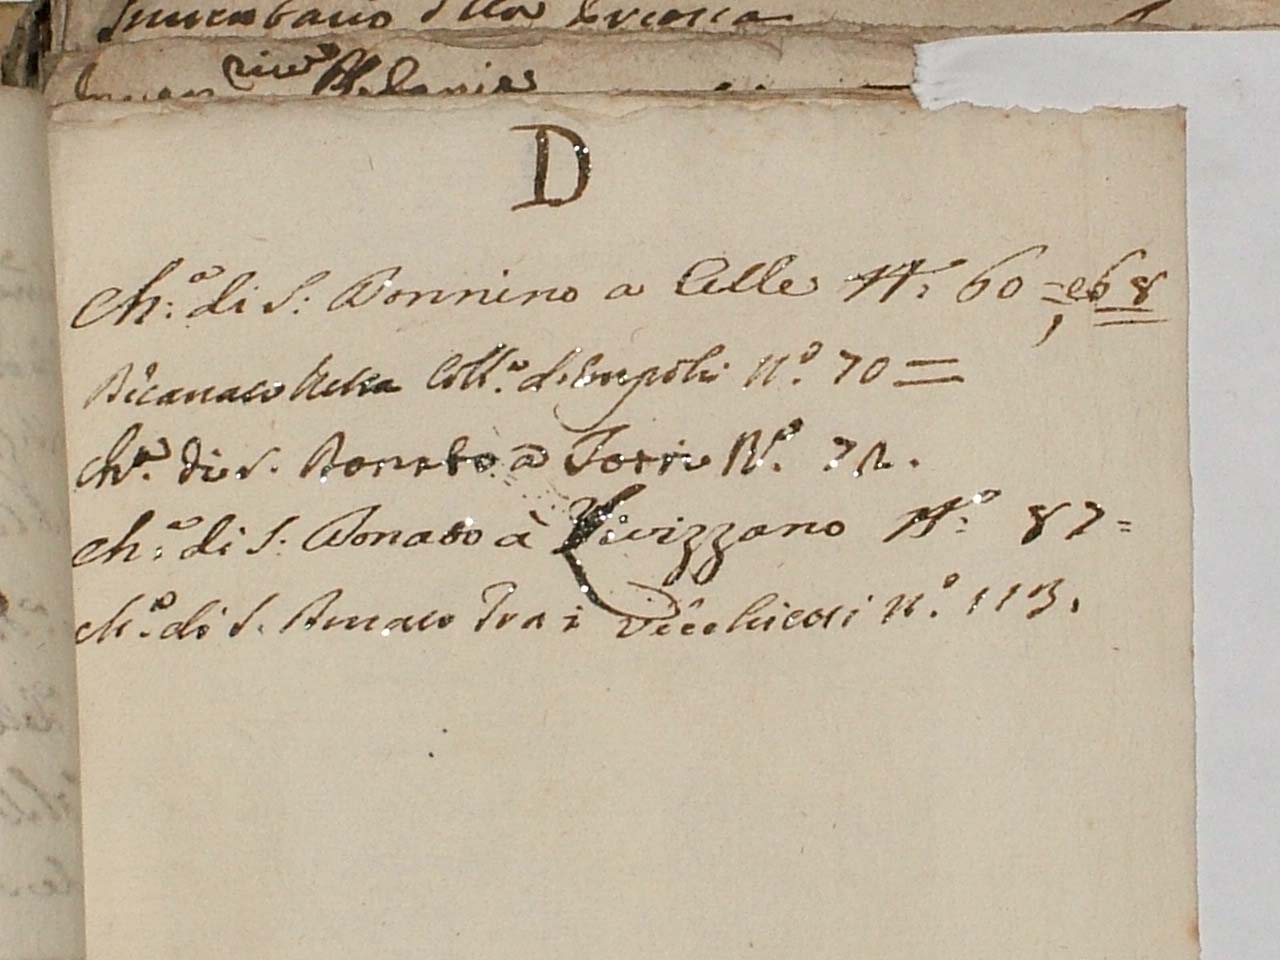 D
Ch.ª di S. Donnino a Celle Nº. 60 = e 68
Dicanato nella Coll.ª d'Empoli Nº. 70 =
Ch.ª di S. Donato a Torri Nº. 72.
Ch.ª di S. Donato à Livizzano Nº. 87 =
Ch.ª di S. Donato Tra i Vecchieti nº. 113.